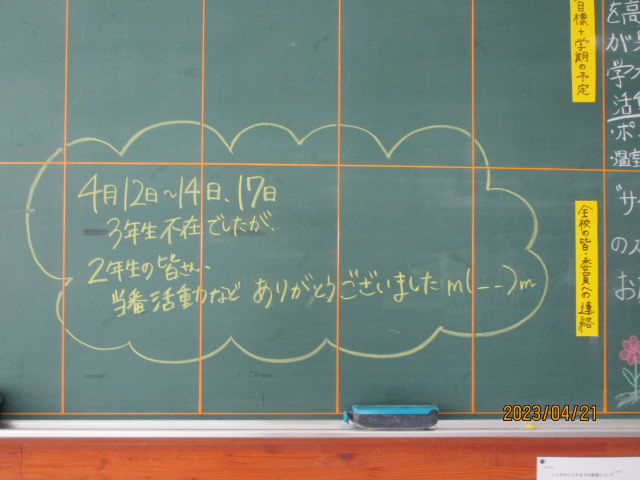 4月12日~14日、17日
3年生不在でしたが、
2年生の皆さん、
当番活動など ありがとうございました m(__)m
目標+学期の予定
全校の皆・委員への連絡
を高
が身
学
活
・ポ
・温室
"サ
のス
お
2023/04/21